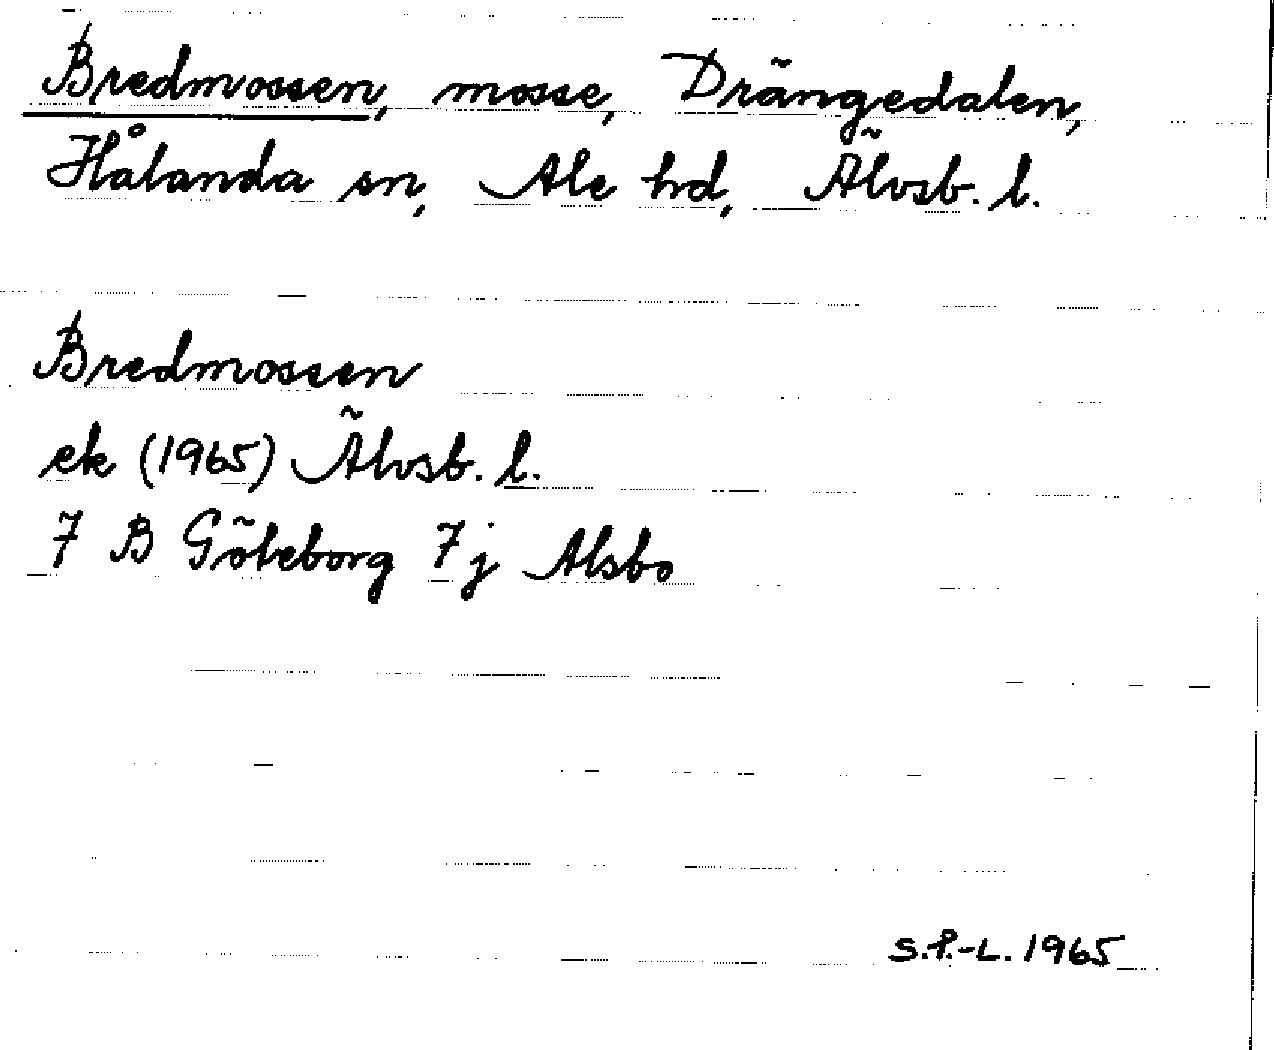 Bredmossen, mosse, Drängedalen,
Hålanda sn, Ale hd, Älvsb. l.
Bredmossen
ek (1965) Älvsb. l.
7 B Göteborg 7j Alsbo
S.P.-L. 1965